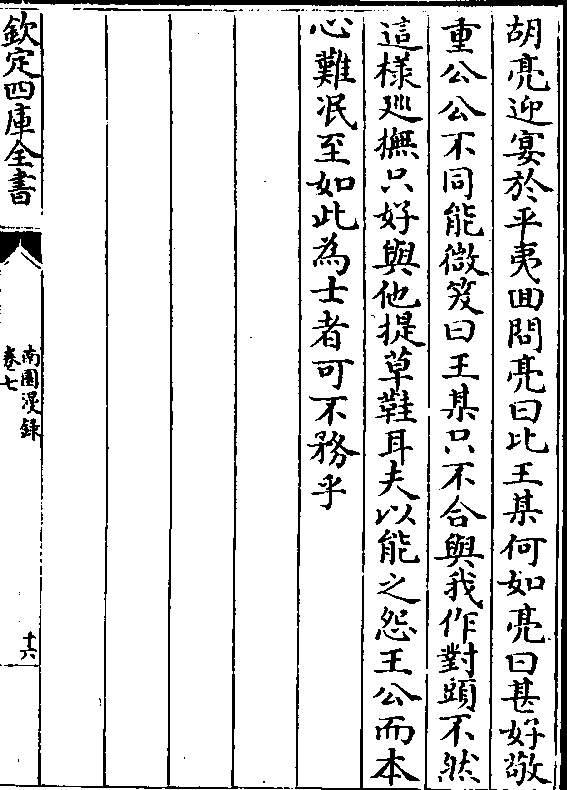 胡亮迎宴於平夷囬問亮曰比王某何如亮曰甚好敬
重公公不同能微笑曰王某只不合與我作對頭不然
這様廵撫只好與他提草鞋耳夫以能之怨王公而本
心難冺至如此為士者可不務乎
欽定四庫全書
南園漫錄
卷七
十六